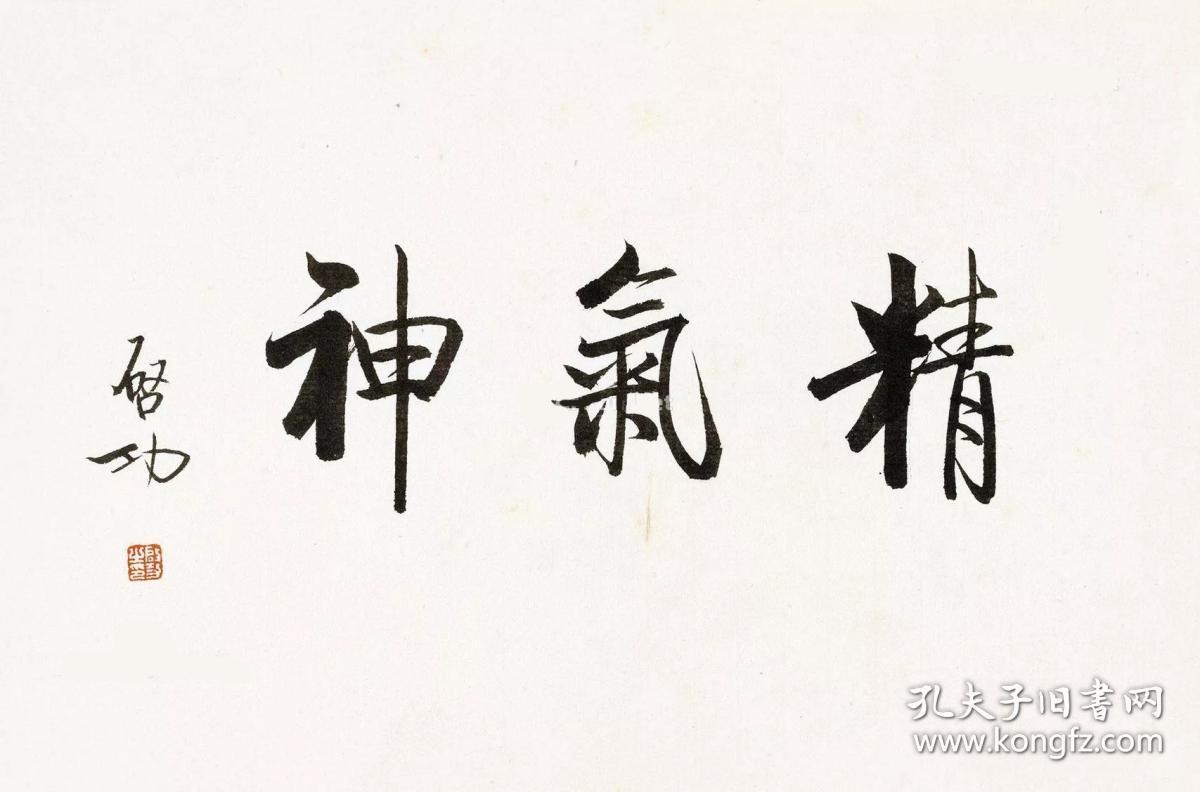 精氣神
啓功
啓功之印
孔夫子旧書网
www.kongfz.com